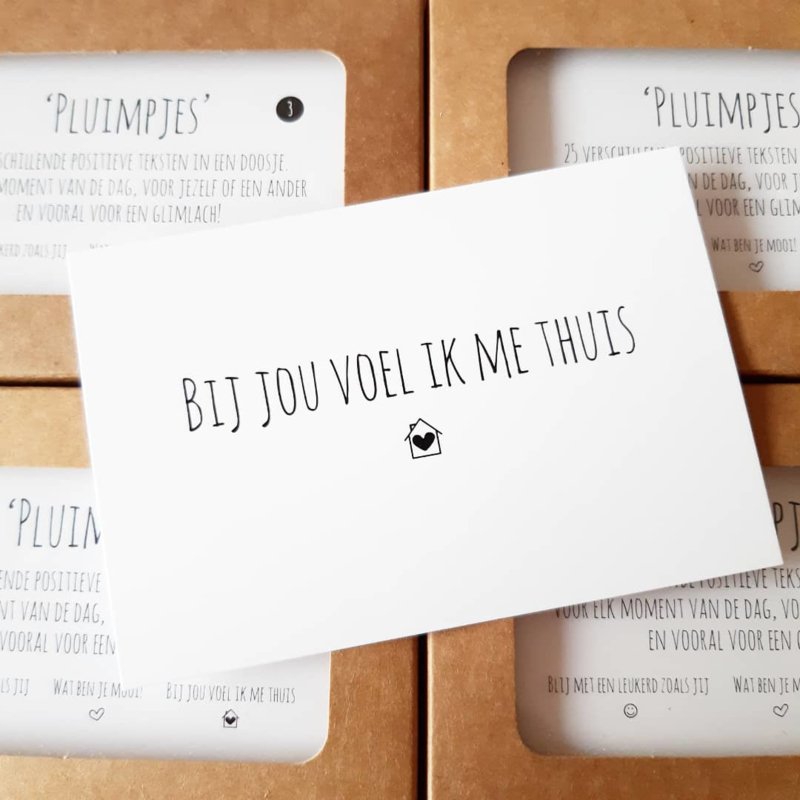 'PLUIMPJES'
3
POSITIEVE TEKSTEN IN EEN DOOSJE.
MOMENT VAN DE DAG, VOOR JEZELF OF EEN ANDER
EN VOORAL VOOR EEN GLIMLACH!
ZOALS JIJ
'PLUIMPJES
25 POSITIEVE TEKSTEN
DE DAG, VOOR
VOOR EEN
WAT BEN JE MOOI!
BIJ JOU VOEL IK ME THUIS
POSITIEVE
MOMENT VAN DE DAG,
VOORAL VOOR EEN
ZOALS JIJ WAT BEN JE MOOI! BIJ JOU VOEL IK ME THUIS
POSITIEVE
VOOR ELK MOMENT VAN DE DAG,
EN VOORAL VOOR EEN
BLIJ MET EEN LEUKERD ZOALS JIJ WAT BEN JE